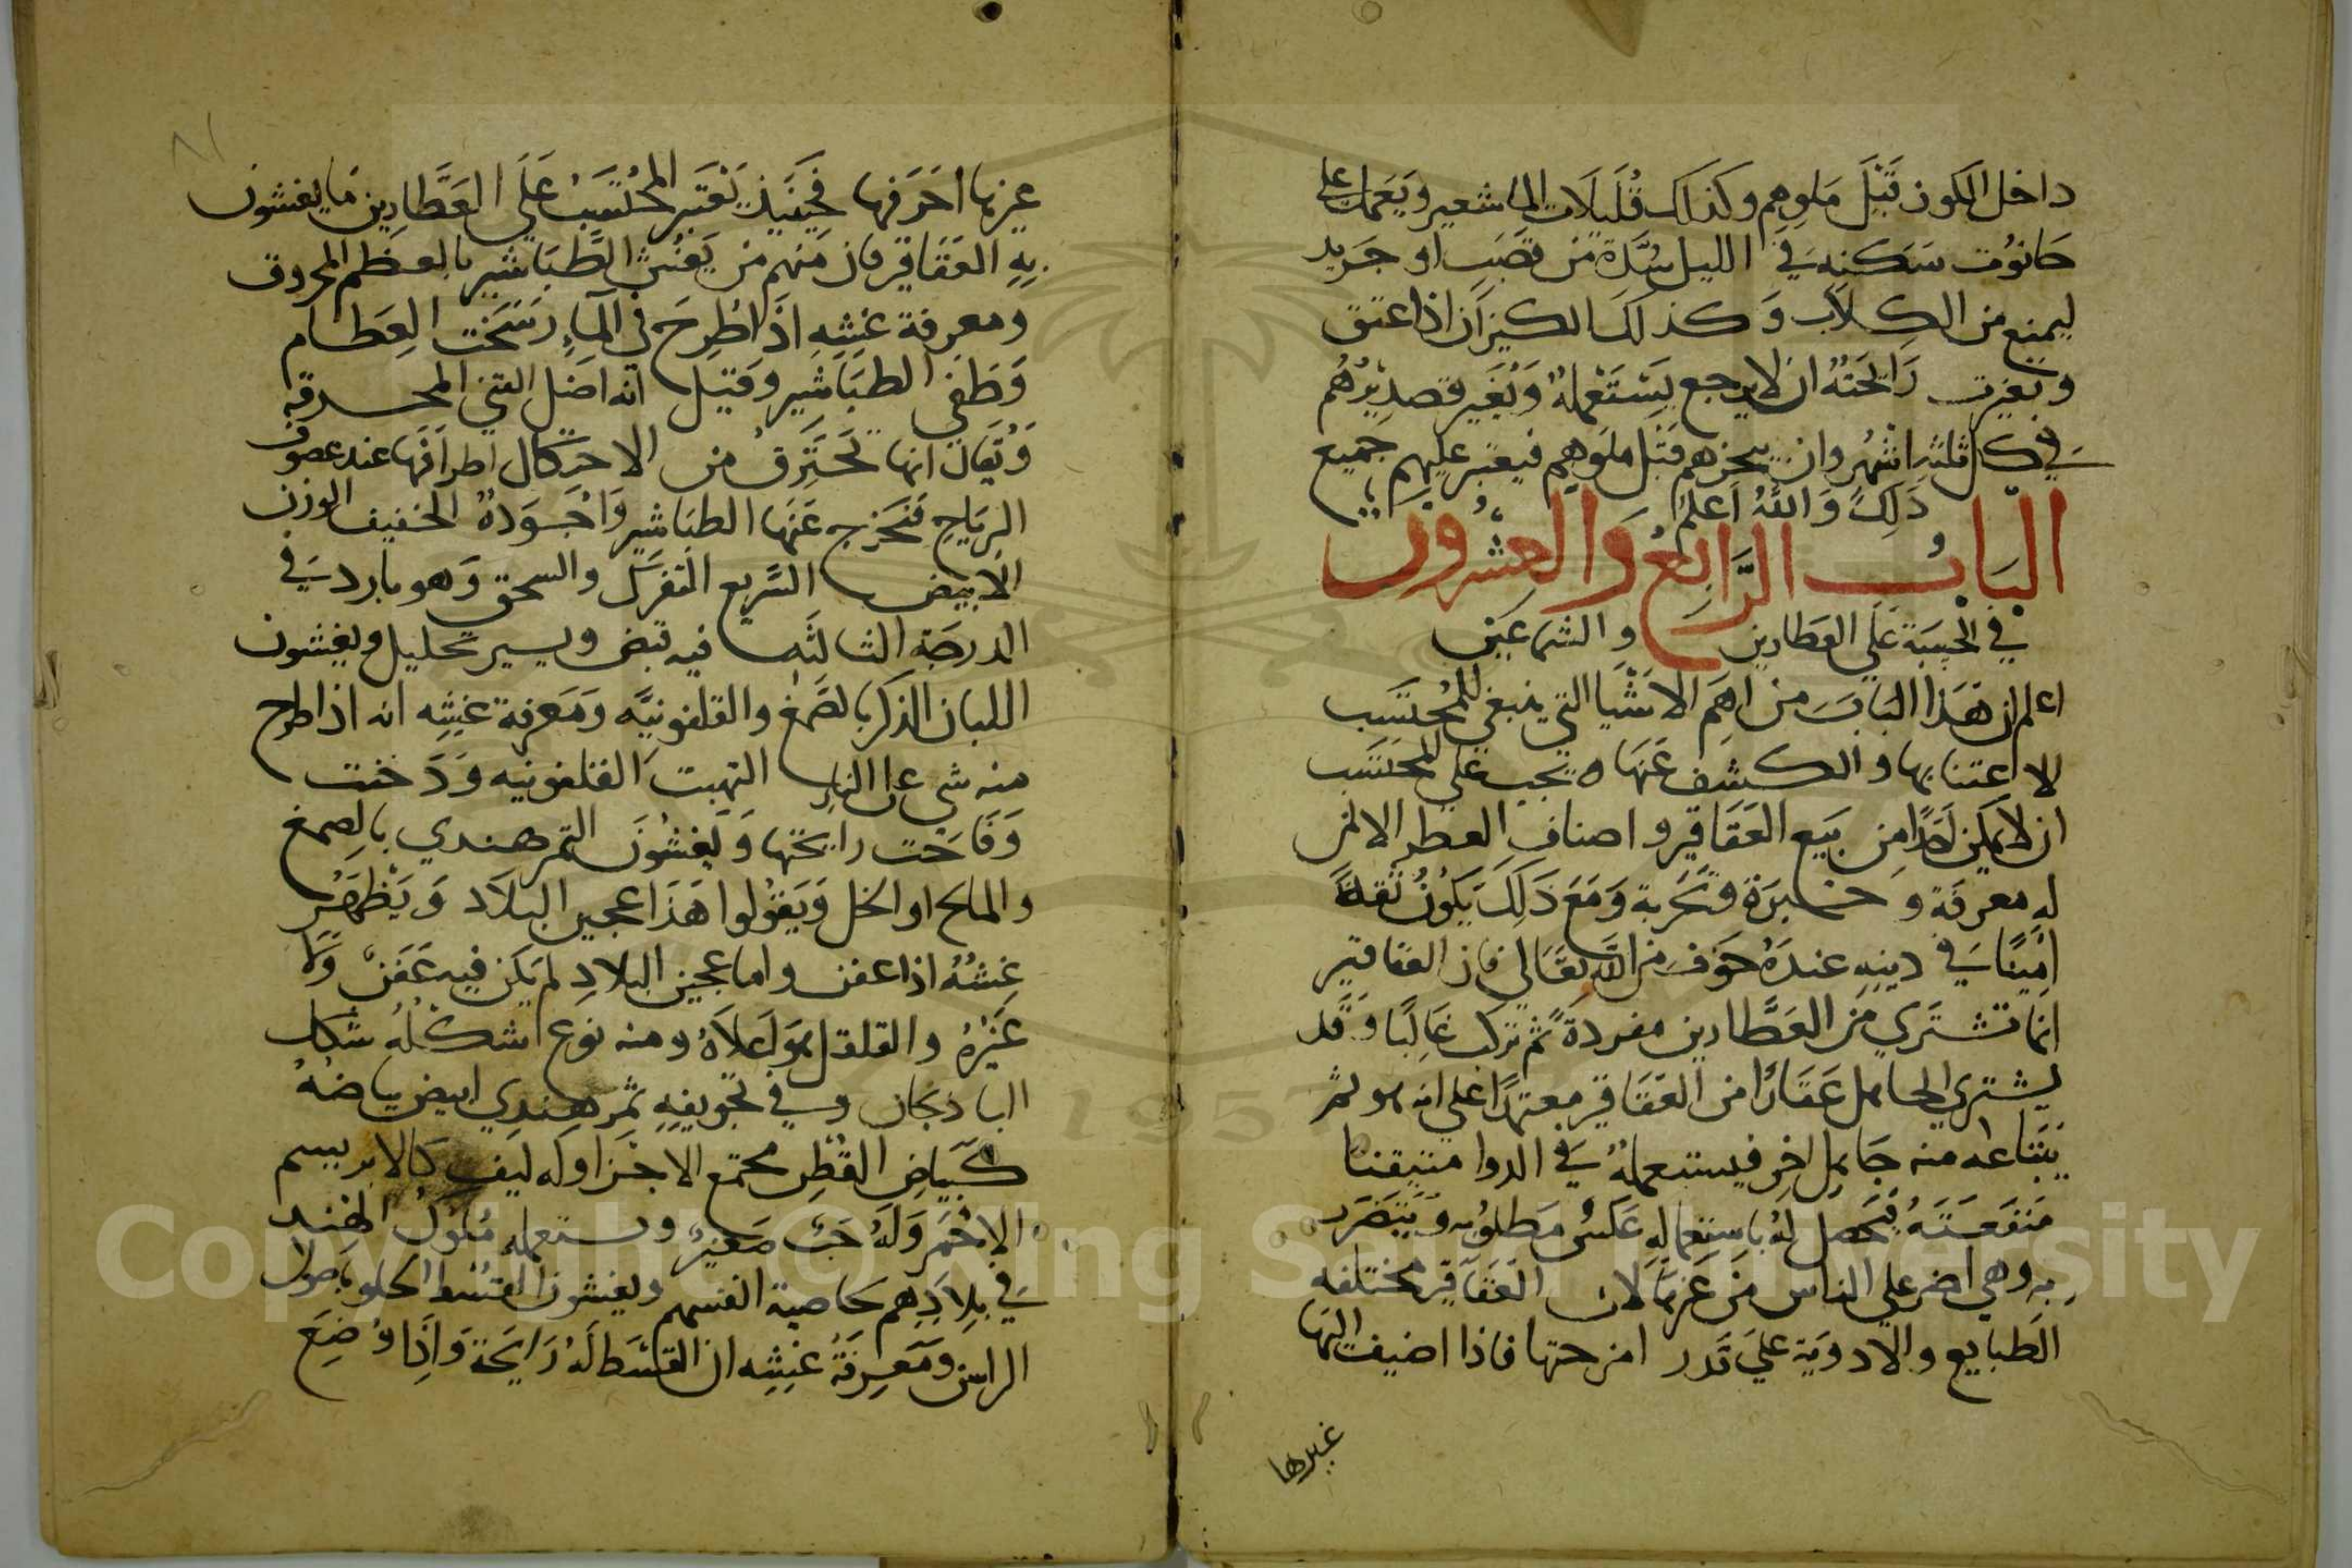 داخل الكوز قبل ملوهم وكذلك قليلات الماشعير ويعمل على
حانوت سكنه في الليل شدة من قصب او جريد
ليمنع من الكلاب وكذلك الكيزان اذا عتق
وتغيرت رايحته ان لا يرجع يستعمله ويغير قصديرهم
في كل ثلثة اشهر وان يبخرهم قبل ملوهم فيعتبر عليهم جميع
ذلك والله اعلم
الباب الرابع والعشرون
في الحسبة على العطارين والشماعين
اعلم ان هذا الباب من اهم الاشيا التي ينبغي للمحتسب
الاعتنا بها والكشف عنها ه يجب على المحتسب
ان لا يمكن احدا من بيع العقاقير واصناف العطر الا لمن
له معرفة وخبرة وتجربة ومع ذلك يكون ثقة
امينا في دينه عنده خوف من الله تعالى فان العقاقير
انما تشترى من العطارين مفردة ثم تركب غالبا وقد
يشتري الجاهل عقارا من العقاقير معتمدا على انه هو ثم
يبتاعه منه جاهل اخر فيستعمله في الدوا متيقنا
منفعته فيحصل له باستعماله عكس مطلوبه ويتضرر
به وهي اضر على الناس من غيرها لان العقاقير مختلفه
الطبايع والادوية على قدر امزجتها فاذا اضيف اليها
غيرها
غيرها احرفها فحينيذ يعتبر المحتسب على العطارين ما يغشون
به العقاقير فان منهم من يغش الطباشير بالعظم المحروق
ومعرفة غشه اذا طرح في الماء رسخت العظام
وطفي الطباشير وقيل انه اصل القنى المحرقه
ويقال انها تحترق من الاحتكاك اطرافها عند عصوف
الرياح فتخرج عنها الطباشير واجوده الخفيف الوزن
الابيض السريع التفرك والسحق وهو بارد في
الدرجة الثالثه فيه قبض ويسير تحليل ويغشون
اللبان الذكر بالصمغ والقلفونيه ومعرفة غشه انه اذا طرح
منه شي على النار التهبت القلفونيه ودخنت
وفاحت رايحتها ويغشون التمر هندي بالصمغ
والملح او الخل ويقولوا هذا عجين البلاد ويظهر
غشه اذا عفن واما عجين البلاد لم يكن فيه عفن ولا
غيره والقلقل هو اعلاه ومنه نوع اشكله شكل
الباذنجان وفي تجويفه تمر هندي ابيض بياضه
كبياض القطن مجتمع الاجزا وله ليف كالابريسم
الاحمر وله حب صغير ويستعمله ملوك الهند
في بلادهم خاصية انفسهم ويغشون القسط الحلو باصول
الراسن ومعرفة غشه ان القسط له رايحة واذا وضع